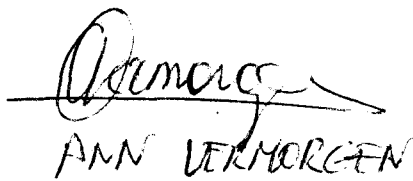 ANN VERMORGEN